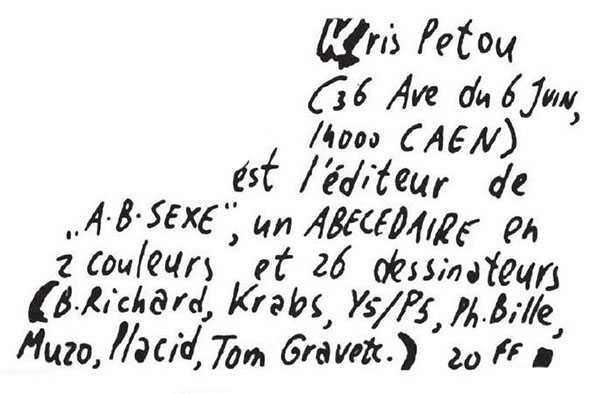 Kris Petou
(36 Ave du 6 JUIN,
14000 CAEN)
est l'éditeur de
"A.B.SEXE", un ABECEDAIRE en
2 couleurs et 26 dessinateurs
(B.Richard, Krabs, Y5/P5, Ph.Bille,
Muzo, Placid, Tom Gravetc.) 20 FF